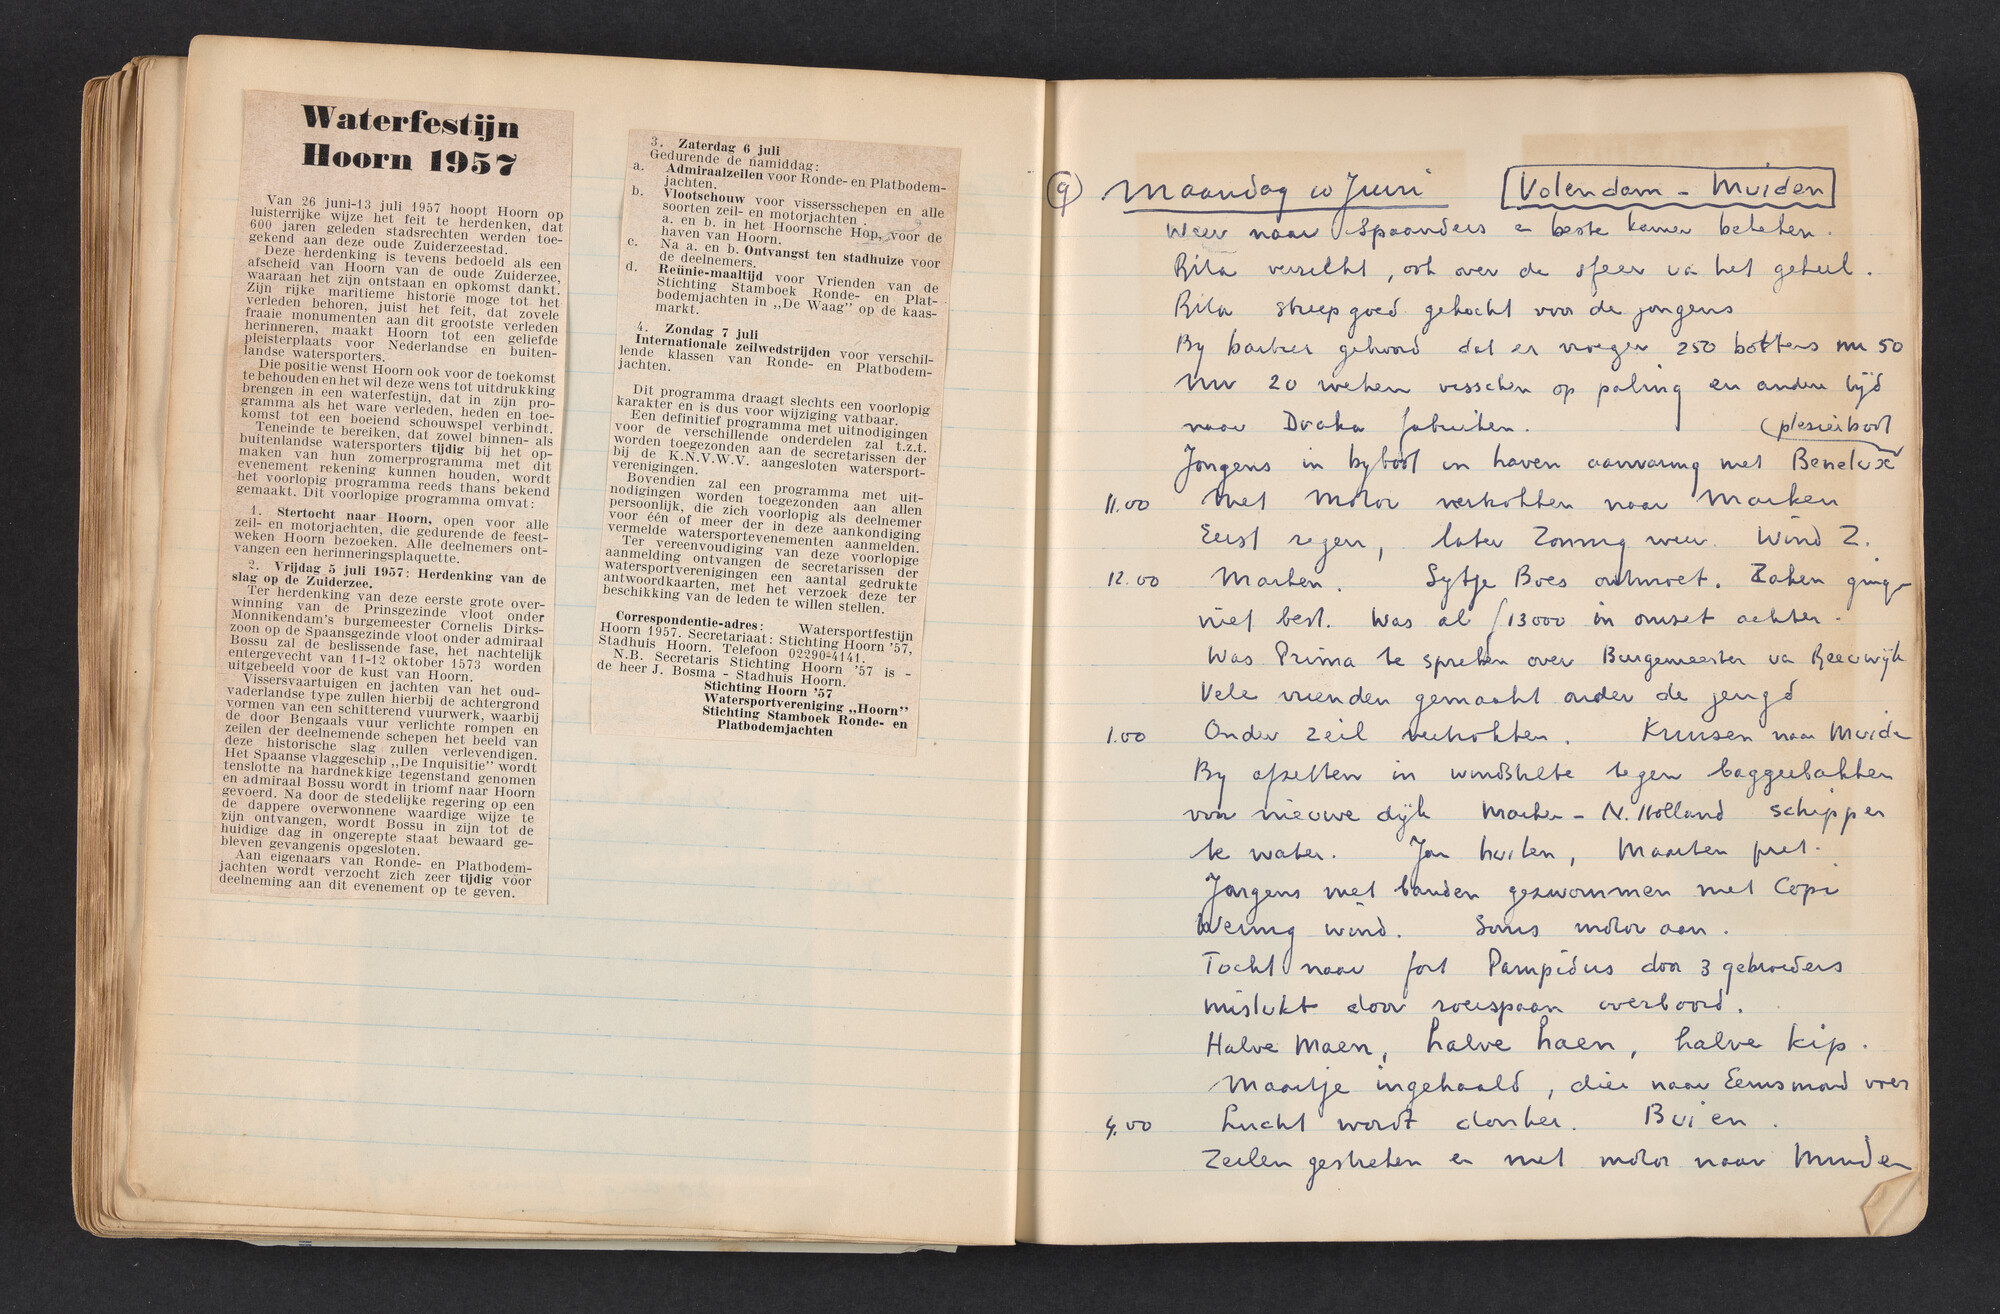 Waterfestijn
Hoorn 1957
Van 26 juni-13 juli 1957 hoopt Hoorn op
luisterrijke wijze het feit te herdenken, dat
600 jaren geleden stadsrechten werden toe-
gekend aan deze oude Zuiderzeestad.
Deze herdenking is tevens bedoeld als een
afscheid van Hoorn van de oude Zuiderzee,
waaraan het zijn ontstaan en opkomst dankt.
Zijn rijke maritieme historie moge tot het
verleden behoren, juist het feit, dat zovele
fraaie monumenten aan dit grootste verleden
herinneren, maakt Hoorn tot een geliefde
pleisterplaats voor Nederlandse en buiten-
landse watersporters.
Die positie wenst Hoorn ook voor de toekomst
te behouden en het wil deze wens tot uitdrukking
brengen in een waterfestijn, dat in zijn pro-
gramma als het ware verleden, heden en toe-
komst tot een boeiend schouwspel verbindt.
Teneinde te bereiken, dat zowel binnen- als
buitenlandse watersporters tijdig bij het op-
maken van hun zomerprogramma met dit
evenement rekening kunnen houden, wordt
het voorlopig programma reeds thans bekend
gemaakt. Dit voorlopige programma omvat:
1. Stertocht naar Hoorn, open voor alle
zeil- en motorjachten, die gedurende de feest-
weken Hoorn bezoeken. Alle deelnemers ont-
vangen een herinneringsplaquette.
2. Vrijdag 5 juli 1957: Herdenking van de
slag op de Zuiderzee.
Ter herdenking van deze eerste grote over-
winning van de Prinsgezinde vloot onder
Monnikendam's burgemeester Cornelis Dirks-
zoon op de Spaansgezinde vloot onder admiraal
Bossu zal de beslissende fase, het nachtelijk
entergevecht van 11-12 oktober 1573 worden
uitgebeeld voor de kust van Hoorn.
Vissersvaartuigen en jachten van het oud-
vaderlandse type zullen hierbij de achtergrond
vormen van een schitterend vuurwerk, waarbij
de door Bengaals vuur verlichte rompen en
zeilen der deelnemende schepen het beeld van
deze historische slag zullen verlevendigen.
Het Spaanse vlaggeschip „De Inquisitie” wordt
tenslotte na hardnekkige tegenstand genomen
en admiraal Bossu wordt in triomf naar Hoorn
gevoerd. Na door de stedelijke regering op een
de dappere overwonnene waardige wijze te
zijn ontvangen, wordt Bossu in zijn tot de
huidige dag in ongerepte staat bewaard ge-
bleven gevangenis opgesloten.
Aan eigenaars van Ronde- en Platbodem-
jachten wordt verzocht zich zeer tijdig voor
deelneming aan dit evenement op te geven.
3. Zaterdag 6 juli
Gedurende de namiddag:
a. Admiraalzeilen voor Ronde- en Platbodem-
jachten.
b. Vlootschouw voor vissersschepen en alle
soorten zeil- en motorjachten.
a. en b. in het Hoornsche Hop, voor de
haven van Hoorn.
c. Na a. en b. Ontvangst ten stadhuize voor
de deelnemers.
d. Reünie-maaltijd voor Vrienden van de
Stichting Stamboek Ronde- en Plat-
bodemjachten in „De Waag” op de kaas-
markt.
4. Zondag 7 juli
Internationale zeilwedstrijden voor verschil-
lende klassen van Ronde- en Platbodem-
jachten.
Dit programma draagt slechts een voorlopig
karakter en is dus voor wijziging vatbaar.
Een definitief programma met uitnodigingen
voor de verschillende onderdelen zal t.z.t.
worden toegezonden aan de secretarissen der
bij de K.N.V.W.V. aangesloten watersport-
verenigingen.
Bovendien zal een programma met uit-
nodigingen worden toegezonden aan allen
persoonlijk, die zich voorlopig als deelnemer
voor één of meer der in deze aankondiging
vermelde watersportevenementen aanmelden.
Ter vereenvoudiging van deze voorlopige
aanmelding ontvangen de secretarissen der
watersportverenigingen een aantal gedrukte
antwoordkaarten, met het verzoek deze ter
beschikking van de leden te willen stellen.
Correspondentie-adres: Watersportfestijn
Hoorn 1957. Secretariaat: Stichting Hoorn '57,
Stadhuis Hoorn. Telefoon 02290-4141.
N.B. Secretaris Stichting Hoorn '57 is -
de heer J. Bosma - Stadhuis Hoorn.
Stichting Hoorn '57
Watersportvereniging „Hoorn”
Stichting Stamboek Ronde- en
Platbodemjachten
9 Maandag 10 Juni Volendam - Muiden
Weer naar Spaanders e beste kamer bekeken.
Rita verrukt, ook over de sfeer va het geheel.
Rita streepgoed gekocht voor de jongens
By barbier gehoord dat er vroeger 250 botters nu 50
nu 20 weken visschen op paling en andere tijd
naar Draka fabrieken. (plesierboot
Jongens in byboot in haven aanvaring met Benelux
11.00 Met motor vertrokken naar Marken
Eerst regen, later Zonnig weer. Wind Z.
12.00 Marken. Sytje Boes ontmoet. Zaken ginge
niet best. Was al ƒ13000 in omzet achter.
Was Prima te spreken over Burgemeester va Reeuwijk
Vele vrienden gemaakt onder de jeugd
1.00 Onder zeil vertrokken. Kruisen naar Muide
By afzetten in windstilte tegen baggerbakken
van nieuwe dijk Marken - N. Holland schipper
te water. Jan huilen, Maarten pret.
Jongens met banden gezwommen met Copi
Weinig wind. Soms motor aan.
Tocht naar fort Pampidus door 3 gebroeders
mislukt door roeispaan overboord.
Halve Maen, halve haen, halve kip.
Maartje ingehaald, die naar Eemsmond voer
4.00 Lucht wordt donker. Buien.
Zeilen gestreken e met motor naar Muiden